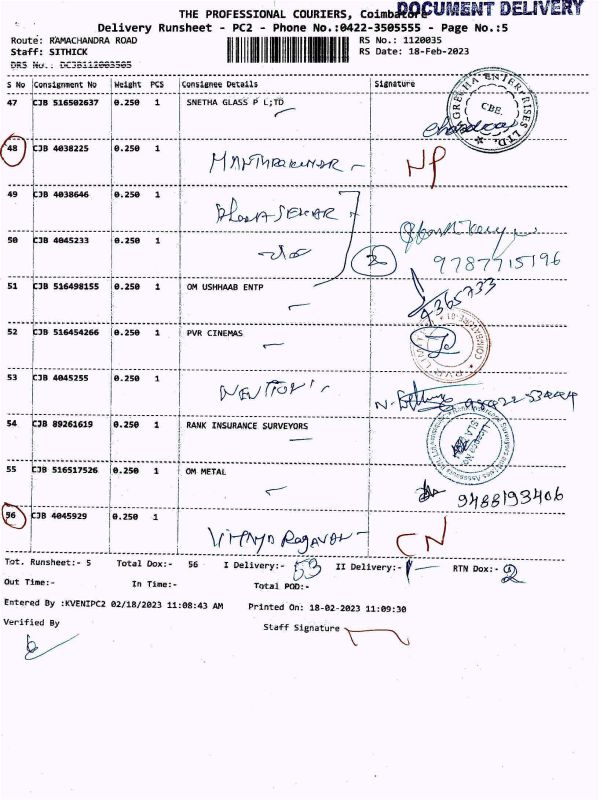 THE PROFESSIONAL COURIERS, Coimbatore
DOCUMENT DELIVERY
Delivery Runsheet - PC2 - Phone No.:0422-3505555 - Page No.:5
Route: RAMACHANDRA ROAD
RS No.: 1120035
Staff: SITHICK
RS Date: 18-Feb-2023
DRS No.: DCJB112003505
S No Consignment No Weight PCS Consignee Details Signature
47 CJB 516502637 0.250 1 SNETHA GLASS P L;TD
ENTERPRISES LTD.
CBE.
48 CJB 4038225 0.250 1 NP
49 CJB 4038646 0.250 1
50 CJB 4045233 0.250 1 2
9787715196
51 CJB 516498155 0.250 1 OM USHHAAB ENTP
52 CJB 516454266 0.250 1 PVR CINEMAS
53 CJB 4045255 0.250 1
54 CJB 89261619 0.250 1 RANK INSURANCE SURVEYORS
55 CJB 516517526 0.250 1 OM METAL
9488193406
56 CJB 4045929 0.250 1 CN
Tot. Runsheet:- 5 Total Dox:- 56 I Delivery:- 53 II Delivery:- 1 RTN Dox:- 2
Out Time:- In Time:- Total POD:-
Entered By :KVENIPC2 02/18/2023 11:08:43 AM Printed On: 18-02-2023 11:09:30
Verified By
Staff Signature